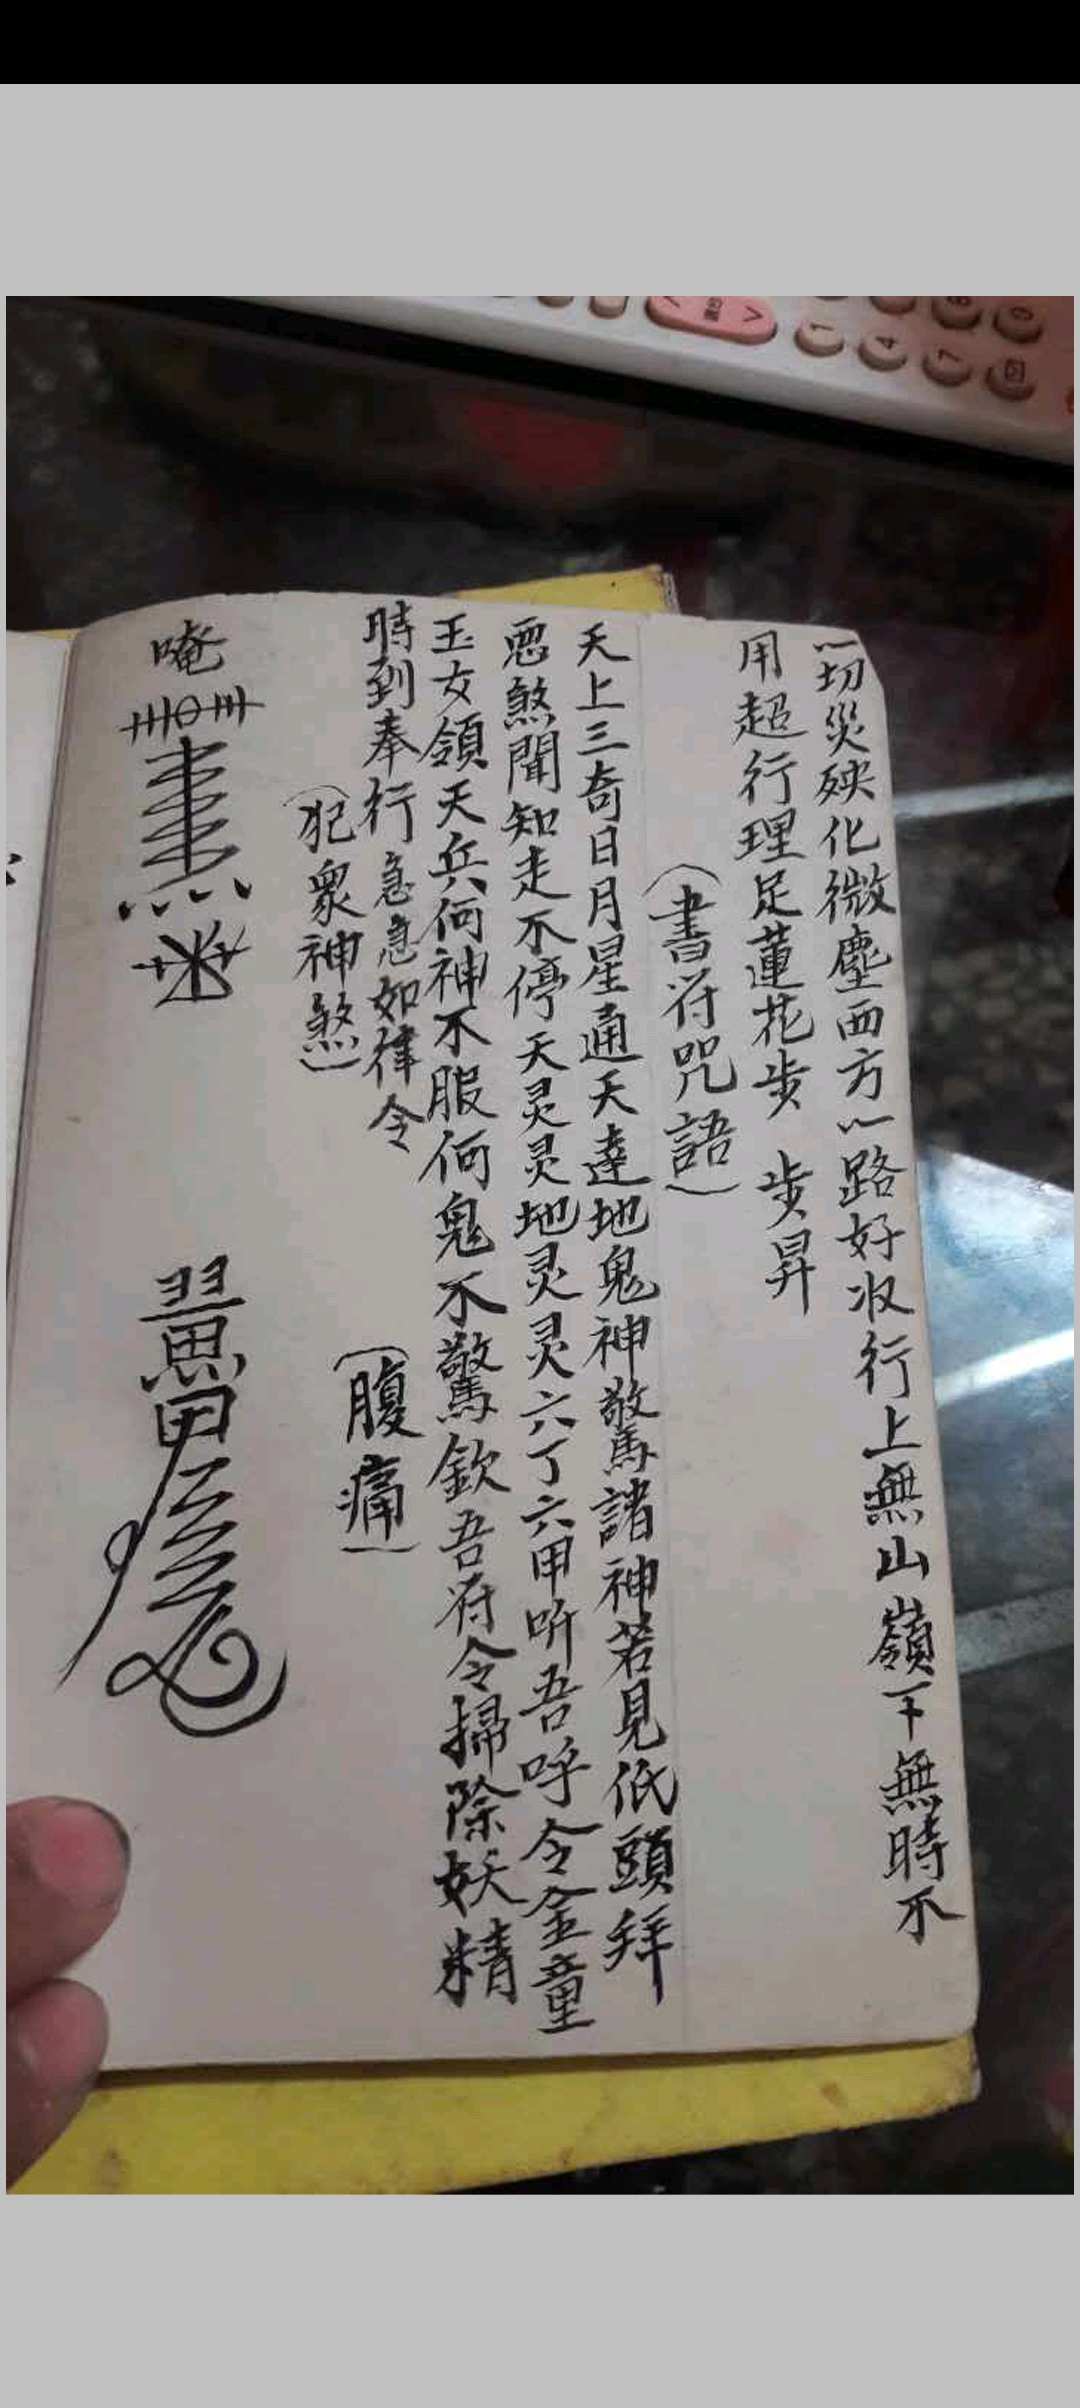 一切災殃化微塵西方一路好收行上無山嶺下無時不
用超行理足蓮花步步昇
（書符咒語）
天上三奇日月星通天達地鬼神驚諸神若見低頭拜
惡煞聞知走不停天灵灵地灵灵六丁六甲听吾呼令金童
玉女領天兵何神不服何鬼不驚欽吾符令掃除妖精
時到奉行急急如律令
（犯衆神煞）
（腹痛）
唵
1
4
7
0